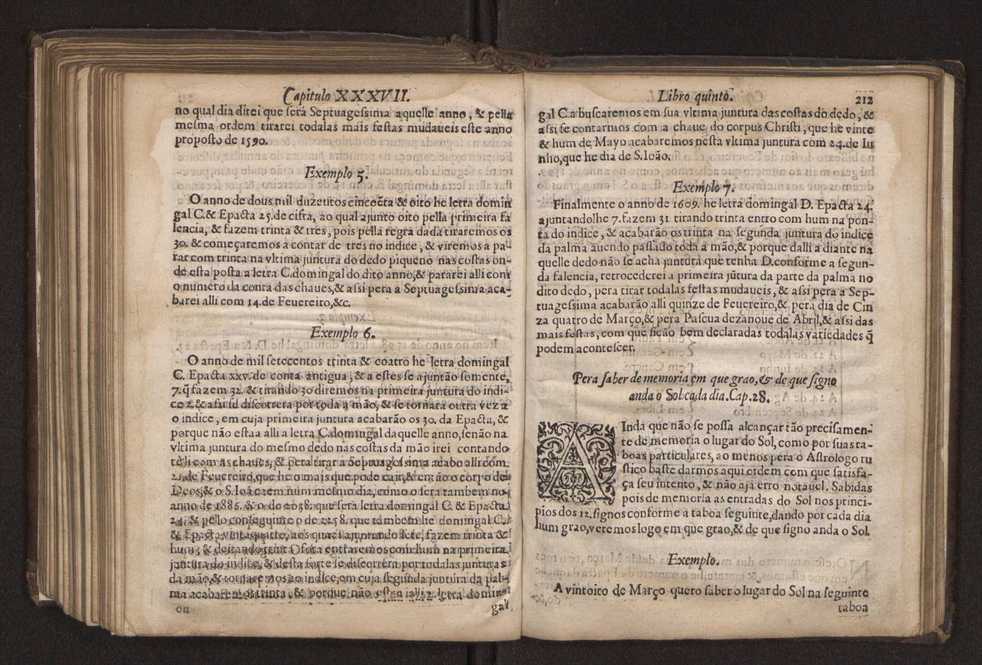 Capitulo XXXVII.
no qual dia direi que será Septuagessima aquelle anno, & pella
mesma ordem tirarei todalas mais festas mudaueis este anno
proposto de 1590.
Exemplo 5.
O anno de dous mil duzētitos cincoēta & oito he letra domin
gal C. & Epacta 25. de cista, ao qual ajunto oito pella primeira fa
lencia, & fazem trinta & tres, pois pella regra dada tiraremos os
30. & começaremos a contar de tres no indice, & viremos a pa-
rar com trinta na vltima juntura do dedo piqueno nas costas on-
de esta posta a letra C. domingal do dito anno, & pararei alli com
o numero da conta das chaues, & assi pera a Septuagessima aca-
barei alli com 14. de Feuereiro, &c.
Exemplo 6.
O anno de mil setecentos trinta & coatro he letra domingal
C. Epacta xxv. de conta antigua, & a estes se ajuntão somente,
7. q̃ fazem 32. & tirando 30 diremos na primeira juntura do indi-
ce 2. & assi se discorrera por toda a mão, & se tornara outra vez a
o indice, em cuja primeira juntura acabarão os 30. da Epacta, &
porque não estaa alli a letra C. domingal daquelle anno, senão na
vltima juntura do mesmo dedo nas costas da mão irei contando
té li com as chaues, & pera tirar a Septuagessima acabo alli com
21. de Feuereiro, que he o mais que pode cair, & em tão o corpo de
Deos, & o S. Ioão cem num mesmo dia, como o sera tambem no
anno de 1886. & o do 2038. que será letra domingal C. & Epacta
24. & pello conseguinte o de 2258. que tambem he domingal C.
& Epacta vintaquatro, aos quaes ajuntando sete, fazem trinta &
hum, & deitando trinta fora entraremos com hum na primeira
juntura do indice, & desta sorte se discorrem por todalas junturas
da mão, & tornaremos ao indice, em cuja segunda juntura da pal-
ma acabarem os trinta, & porque não esta alli a letra domin-
gal
Libro quinto. 212
gal C. a buscaremos em sua vltima juntura das costas do dedo, &
assi se contarmos com a chaue do corpus Christi, que he vinte
& hum de Mayo acabaremos nesta vltima juntura com 24. de Iu
nho, que he dia de S. Ioão.
Exemplo 7.
Finalmente o anno de 1609. he letra domingal D. Epacta 24.
ajuntandolhe 7. fazem 31 tirando trinta entro com hum na pon-
ta do indice, & acabarão os trinta na segunda juntura do indice
da palma auendo passado toda a mão, & porque dalli a diante na
quelle dedo não se acha juntura que tenha D. conforme a segun-
da falencia, retrocederei a primeira jūtura da parte da palma no
dito dedo, pera tirar todalas festas mudaueis, & assi pera a Sep-
tuagessima acabarão alli quinze de Feuereiro, & pera dia de Cin
za quatro de Março, & pera Pascua dezanoue de Abril, & assi das
mais festas, com que ficão bem declaradas todalas variedades q̃
podem acontescer.
Pera saber de memoria em que grao, & de que signo
anda o Sol cada dia. Cap. 28.
AInda que não se possa alcançar tão precisamen-
te de memoria o lugar do Sol, como por suas ta-
boas particulares, ao menos pera o Astrologo ru
stico baste darmos aqui ordem com que satisfa-
ça seu intento, & não aja erro notauel. Sabidas
pois de memoria as entradas do Sol nos princi-
pios dos 12. signos conforme a taboa seguinte, dando por cada dia
hum grao, veremos logo em que grao, & de que signo anda o Sol.
Exemplo.
A vintoito de Março quero saber o lugar do Sol na seguinte
taboa